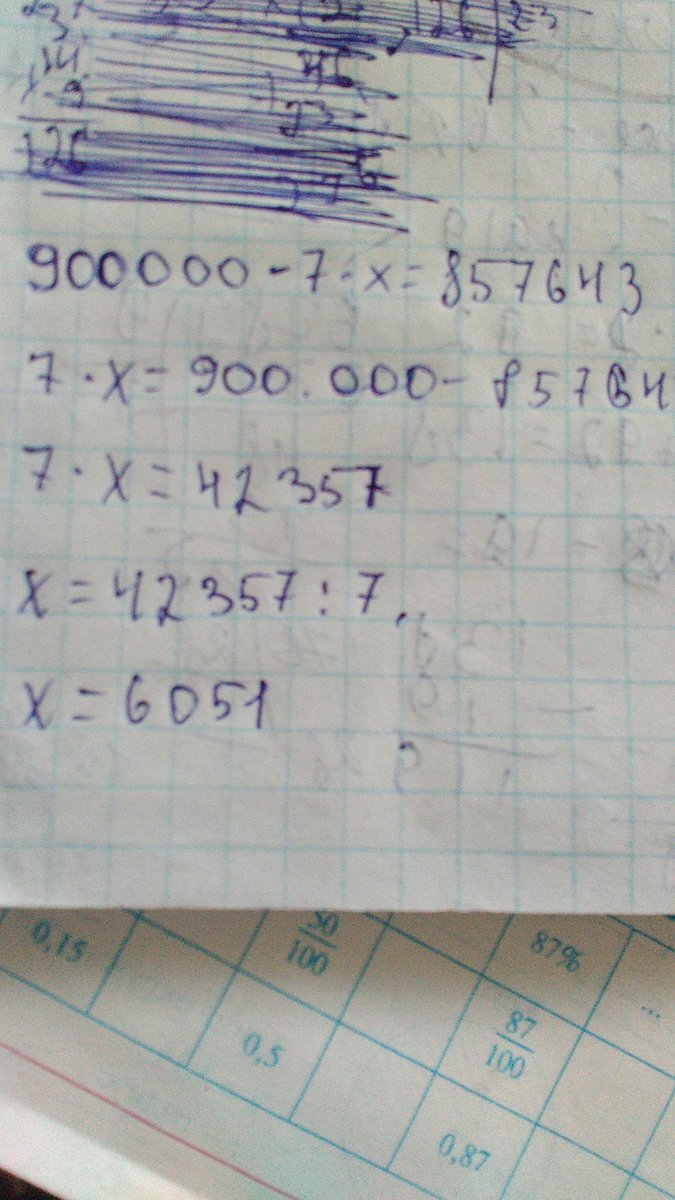 126
126
900000 - 7 · x = 857643
7 · x = 900.000 - 85764
7 · x = 42357
x = 42357 : 7
x = 6051
0,15
50
100
87%
...
0,5
87
100
0,87